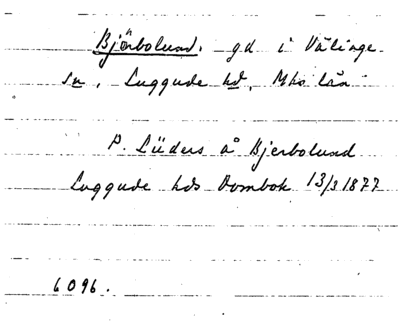 Bjärbolund. gd i Välinge
sn, Luggude hd, Mhs län
P. Lüders å Bjerbolund
Luggude hds Dombok 13/3 1877
6096.